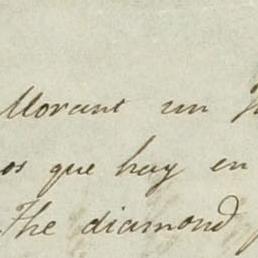 Morant un
os que hay en
The diamond